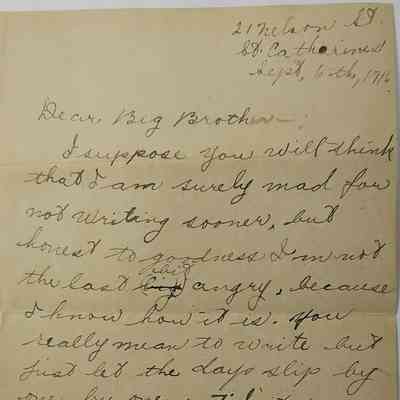 21 Nelson St.
St. Catharines
Sept, 6th, 1916.
Dear Big Brother—:
I suppose you will think
that I am surely mad for
not writing sooner, but
honest to goodness I'm not
the last bit angry, because
I know how it is. You
really mean to write but
just let the days slip by
one by one